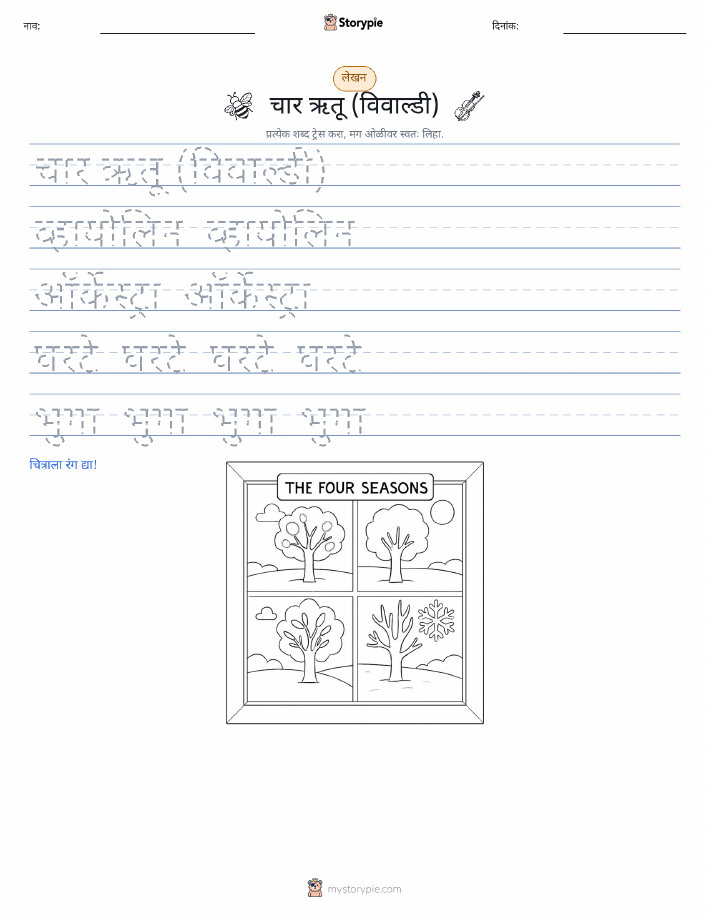 नाव:
Storypie
दिनांक:
लेखन
चार ऋतू (विवाल्डी)
प्रत्येक शब्द ट्रेस करा, मग ओळीवर स्वतः लिहा.
चार ऋतू (विवाल्डी)
व्हायोलिन व्हायोलिन
ऑर्केस्ट्रा ऑर्केस्ट्रा
घरटे घरटे घरटे घरटे
भुंगा भुंगा भुंगा भुंगा
चित्राला रंग द्या!
THE FOUR SEASONS
mystorypie.com